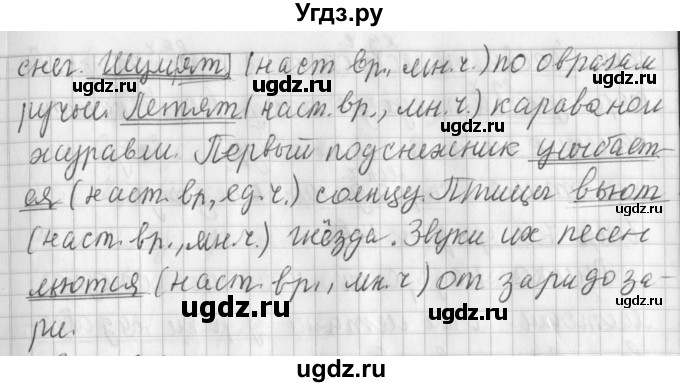 Угдз.ру
снег. Шумят (наст вр., мн.ч.) по оврагам
ручьи. Летят (наст. вр., мн. ч.) караваном
журавли. Первый подснежник улыбает-
ся (наст. вр, ед. ч.) солнцу. Птицы вьют
(наст. вр., мн.ч.) гнёзда. Звуки их песен
льются (наст. вр., мн. ч) от зари до за-
ри.
ugdz.ru
ugdz.ru
ugdz.ru
ugdz.ru
ugdz.ru
ugdz.ru
ugdz.ru
ugdz.ru
ugdz.ru
ugdz.ru